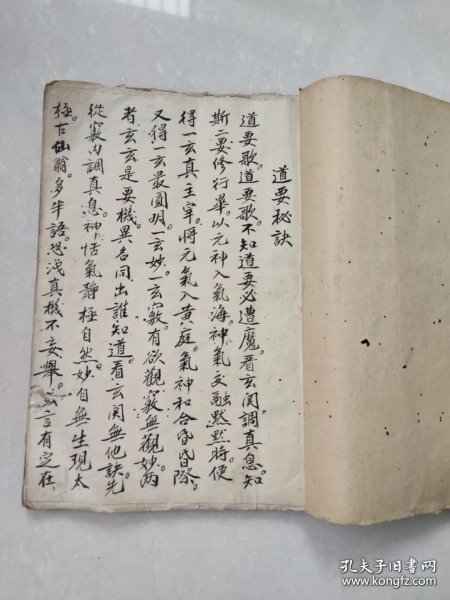 道要秘訣
道要歌。道要歌。不知道要必遭魔。看玄関調真息。知
斯二要修行畢。以元神入氣海。神氣交融黙黙時。便
得一玄真主宰。將元氣入黄庭。氣神和合昏昏際。
又得一玄最圓明。一玄妙。一玄竅。有欲觀竅無觀妙。两
者玄玄是要機。異名同出誰知道。看玄関無他訣。先
從竅内調真息。神恬氣静極自然。妙自無生現太
極。古仙翁。多半語。恐浅真機不妄舉。言有定在
孔夫子旧书网
www.kongfz.com